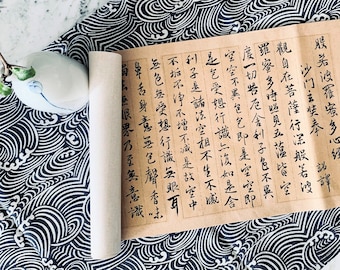 般若波羅蜜多心經
沙門玄奘奉 詔譯
觀自在菩薩行深般若波
羅蜜多時照見五蘊皆空
度一切苦厄舍利子色不異
空空不異色色即是空空即
是色受想行識亦復如是舍
利子是諸法空相不生不滅
不垢不淨不增不減是故空中
無色無受想行識無眼耳
鼻舌身意無色聲香味
法無眼界乃至無意識